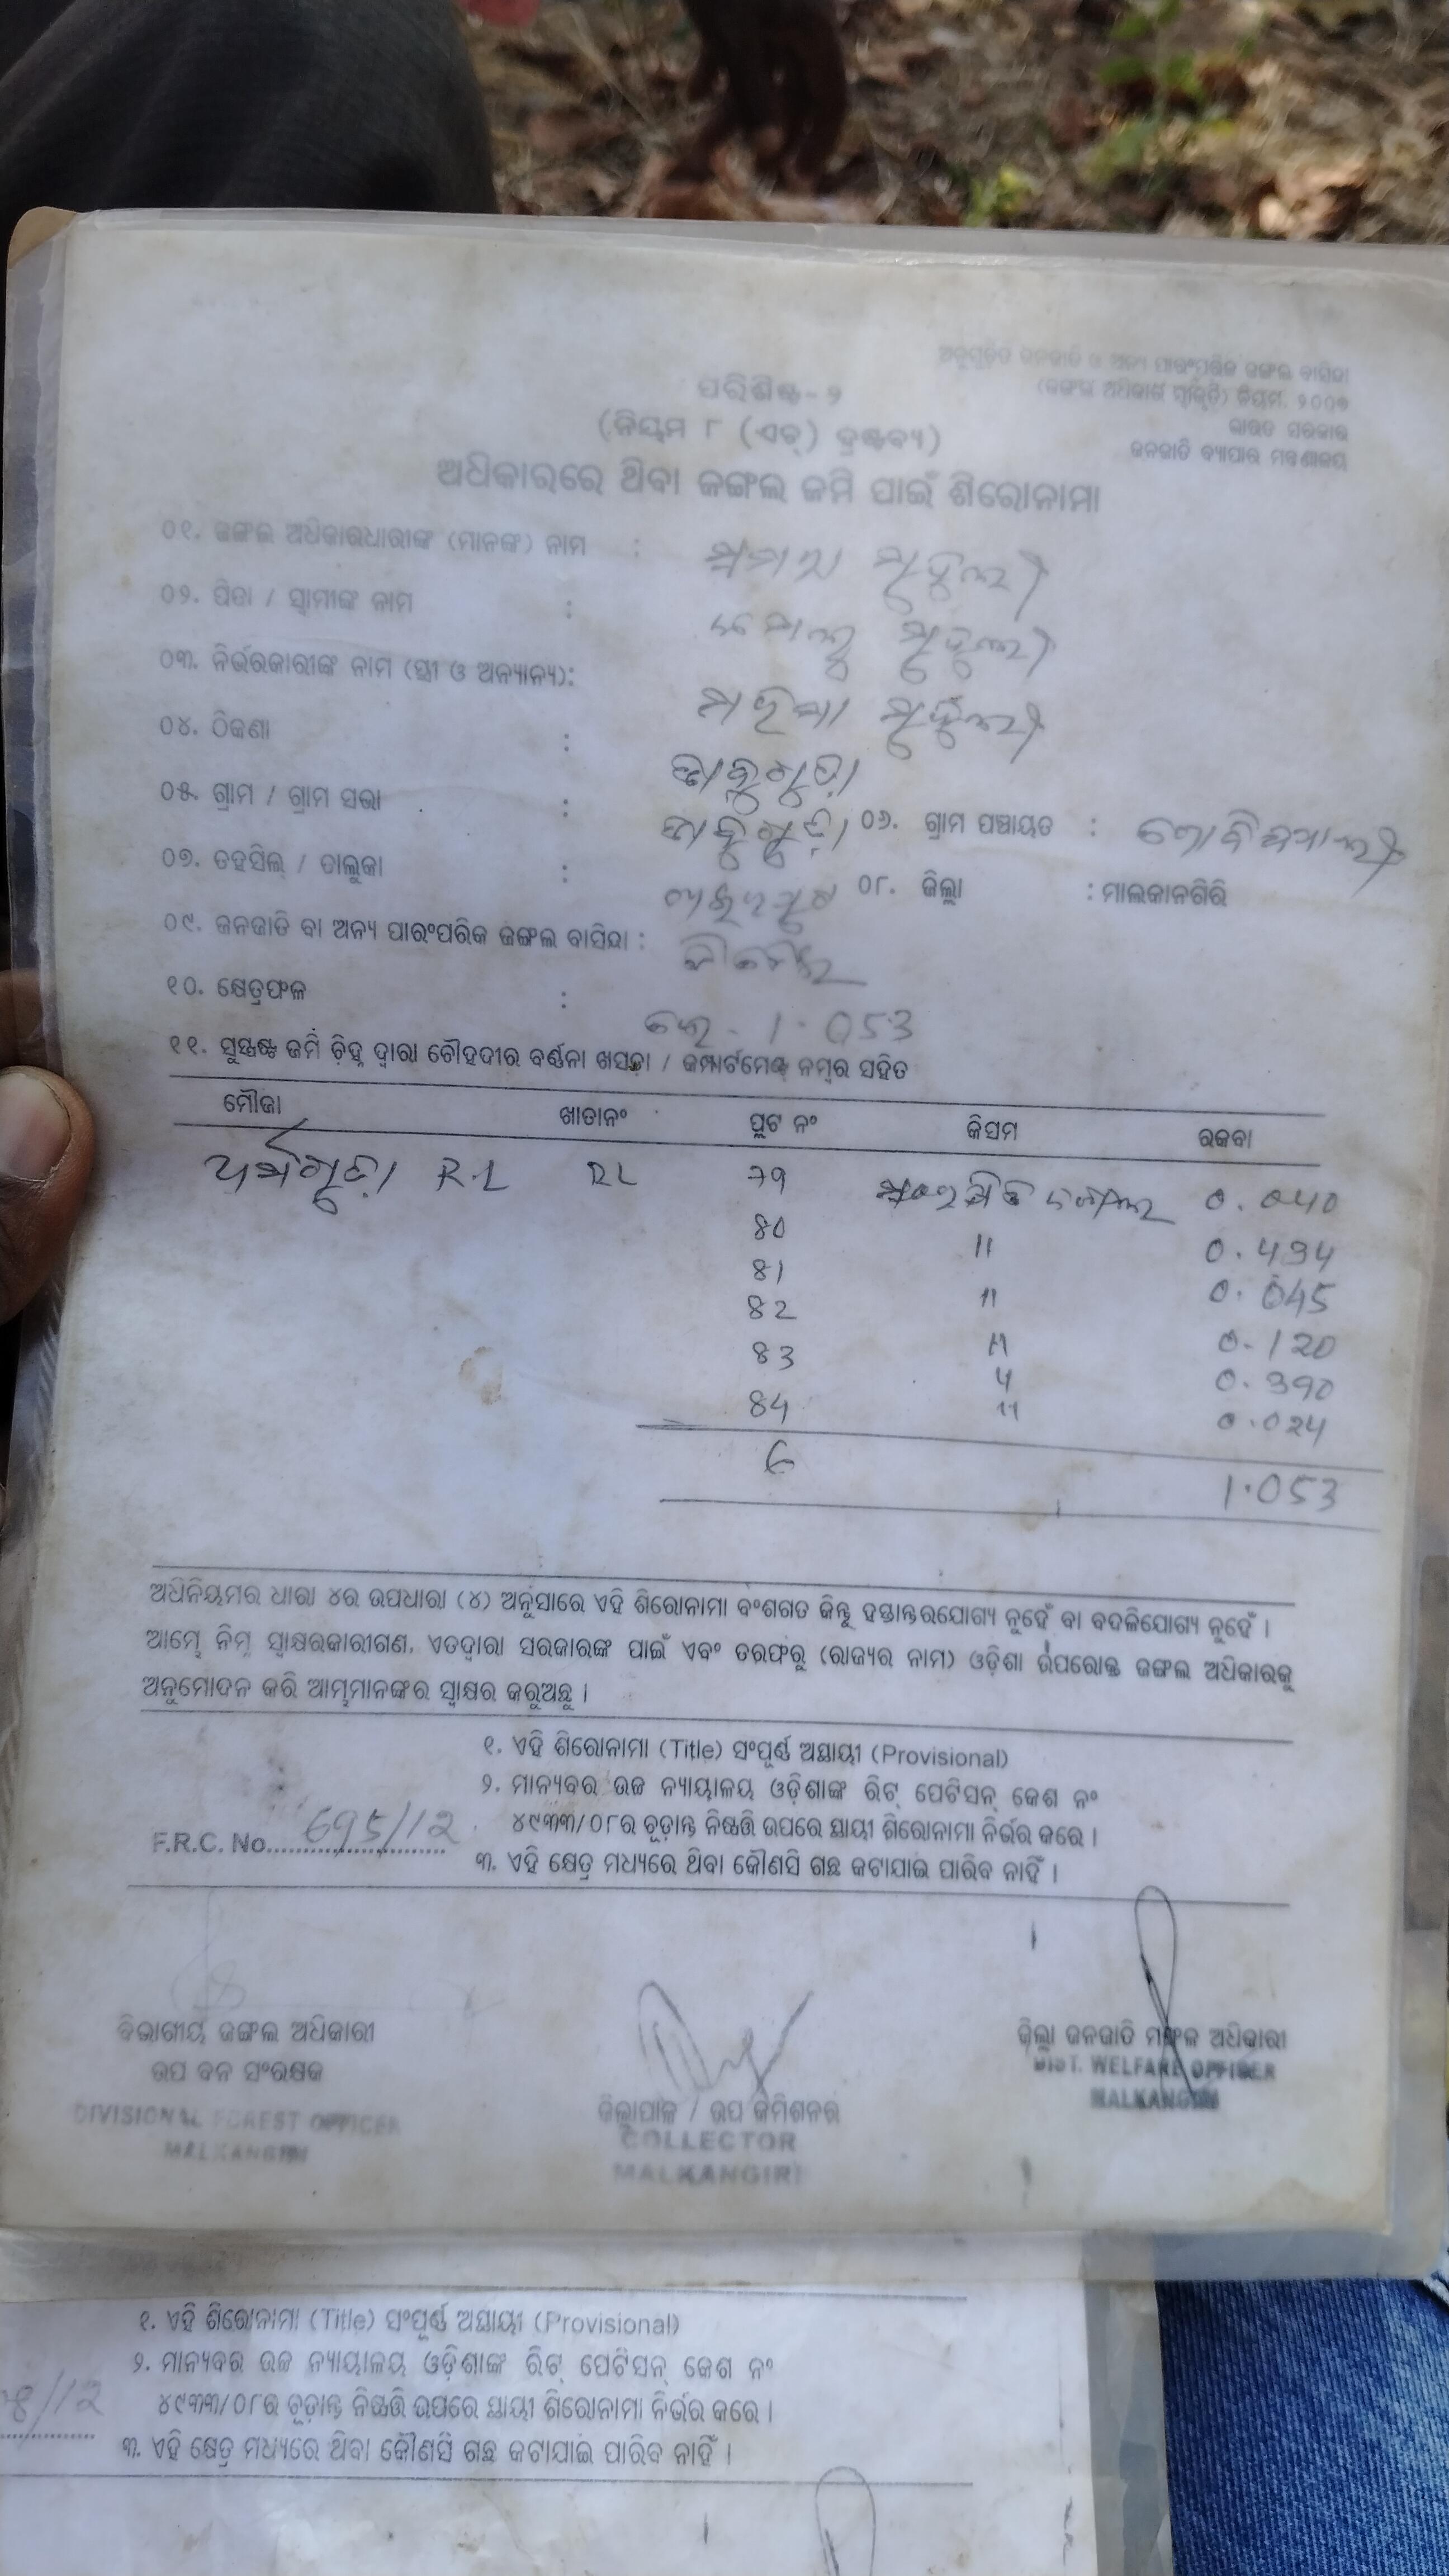 ଅନୁସୂଚିତ ଜନଜାତି ଓ ଅନ୍ୟ ପାରଂପରିକ ଜଙ୍ଗଲ ବାସିନ୍ଦା
(ଜଙ୍ଗଲ ଅଧିକାର ସ୍ୱୀକୃତି) ନିୟମ, ୨୦୦୭
ଭାରତ ସରକାର
ଜନଜାତି ବ୍ୟାପାର ମନ୍ତ୍ରଣାଳୟ
ପରିଶିଷ୍ଟ-୨
(ନିୟମ ୮ (ଏଚ୍) ଦ୍ରଷ୍ଟବ୍ୟ)
ଅଧିକାରରେ ଥିବା ଜଙ୍ଗଲ ଜମି ପାଇଁ ଶିରୋନାମା
୦୧. ଜଙ୍ଗଲ ଅଧିକାରଧାରୀଙ୍କ (ମାନଙ୍କ) ନାମ :
୦୨. ପିତା / ସ୍ୱାମୀଙ୍କ ନାମ :
୦୩. ନିର୍ଭରକାରୀଙ୍କ ନାମ (ସ୍ତ୍ରୀ ଓ ଅନ୍ୟାନ୍ୟ):
୦୪. ଠିକଣା :
୦୫. ଗ୍ରାମ / ଗ୍ରାମ ସଭା : ୦୬. ଗ୍ରାମ ପଞ୍ଚାୟତ :
୦୭. ତହସିଲ୍ / ତାଲୁକା : ୦୮. ଜିଲ୍ଲା : ମାଲକାନଗିରି
୦୯. ଜନଜାତି ବା ଅନ୍ୟ ପାରଂପରିକ ଜଙ୍ଗଲ ବାସିନ୍ଦା :
୧୦. କ୍ଷେତ୍ରଫଳ : 1.053
୧୧. ସୁସ୍ପଷ୍ଟ ଜମି ଚିହ୍ନ ଦ୍ୱାରା ଚୌହଦୀର ବର୍ଣ୍ଣନା ଖସଡ଼ା / କମ୍ପାର୍ଟମେଣ୍ଟ ନମ୍ବର ସହିତ
ମୌଜା ଖାତାନଂ ପ୍ଲଟ ନଂ କିସମ ରକବା
R.L RL 79 0.040
80 11 0.434
81 11 0.045
82 11 0.120
83 0.390
84 11 0.024
6 1.053
ଅଧିନିୟମର ଧାରା ୪ର ଉପଧାରା (୪) ଅନୁସାରେ ଏହି ଶିରୋନାମା ବଂଶଗତ କିନ୍ତୁ ହସ୍ତାନ୍ତରଯୋଗ୍ୟ ନୁହେଁ ବା ବଦଳିଯୋଗ୍ୟ ନୁହେଁ ।
ଆମ୍ଭେ ନିମ୍ନ ସ୍ୱାକ୍ଷରକାରୀଗଣ, ଏତଦ୍ୱାରା ସରକାରଙ୍କ ପାଇଁ ଏବଂ ତରଫରୁ (ରାଜ୍ୟର ନାମ) ଓଡ଼ିଶା ଉପରୋକ୍ତ ଜଙ୍ଗଲ ଅଧିକାରକୁ
ଅନୁମୋଦନ କରି ଆମ୍ଭମାନଙ୍କର ସ୍ୱାକ୍ଷର କରୁଅଛୁ ।
୧. ଏହି ଶିରୋନାମା (Title) ସଂପୂର୍ଣ୍ଣ ଅସ୍ଥାୟୀ (Provisional)
୨. ମାନ୍ୟବର ଉଚ୍ଚ ନ୍ୟାୟାଳୟ ଓଡ଼ିଶାଙ୍କ ରିଟ୍ ପେଟିସନ୍ କେଶ ନଂ
୪୯୩୩/୦୮ର ଚୂଡ଼ାନ୍ତ ନିଷ୍ପତ୍ତି ଉପରେ ସ୍ଥାୟୀ ଶିରୋନାମା ନିର୍ଭର କରେ ।
F.R.C. No. 695/12
୩. ଏହି କ୍ଷେତ୍ର ମଧ୍ୟରେ ଥିବା କୌଣସି ଗଛ କଟାଯାଇ ପାରିବ ନାହିଁ ।
ବିଭାଗୀୟ ଜଙ୍ଗଲ ଅଧିକାରୀ
ଉପ ବନ ସଂରକ୍ଷକ
DIVISIONAL FOREST OFFICER
MALKANGIRI
ଜିଲ୍ଲାପାଳ / ଉପ କମିଶନର
COLLECTOR
MALKANGIRI
ଜିଲ୍ଲା ଜନଜାତି ମଙ୍ଗଳ ଅଧିକାରୀ
DIST. WELFARE OFFICER
MALKANGIRI
୧. ଏହି ଶିରୋନାମା (Title) ସଂପୂର୍ଣ୍ଣ ଅସ୍ଥାୟୀ (Provisional)
୨. ମାନ୍ୟବର ଉଚ୍ଚ ନ୍ୟାୟାଳୟ ଓଡ଼ିଶାଙ୍କ ରିଟ୍ ପେଟିସନ୍ କେଶ ନଂ
8/12 ୪୯୩୩/୦୮ର ଚୂଡ଼ାନ୍ତ ନିଷ୍ପତ୍ତି ଉପରେ ସ୍ଥାୟୀ ଶିରୋନାମା ନିର୍ଭର କରେ ।
୩. ଏହି କ୍ଷେତ୍ର ମଧ୍ୟରେ ଥିବା କୌଣସି ଗଛ କଟାଯାଇ ପାରିବ ନାହିଁ ।